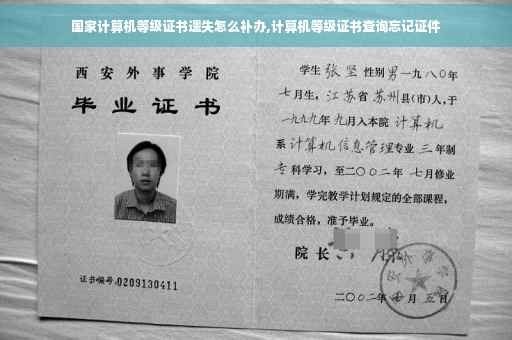 国家计算机等级证书遗失怎么补办,计算机等级证书查询忘记证件
西安外事学院
毕业证书
证书编号:0209130411
学生张坚性别男一九八〇年
七月生,江苏省苏州县(市)人,于
一九九九年九月入本院计算机
系计算机信息管理专业三年制
专科学习,至二〇〇二年七月修业
期满,学完教学计划规定的全部课程,
成绩合格,准予毕业。
院长
二〇〇二年 月五日